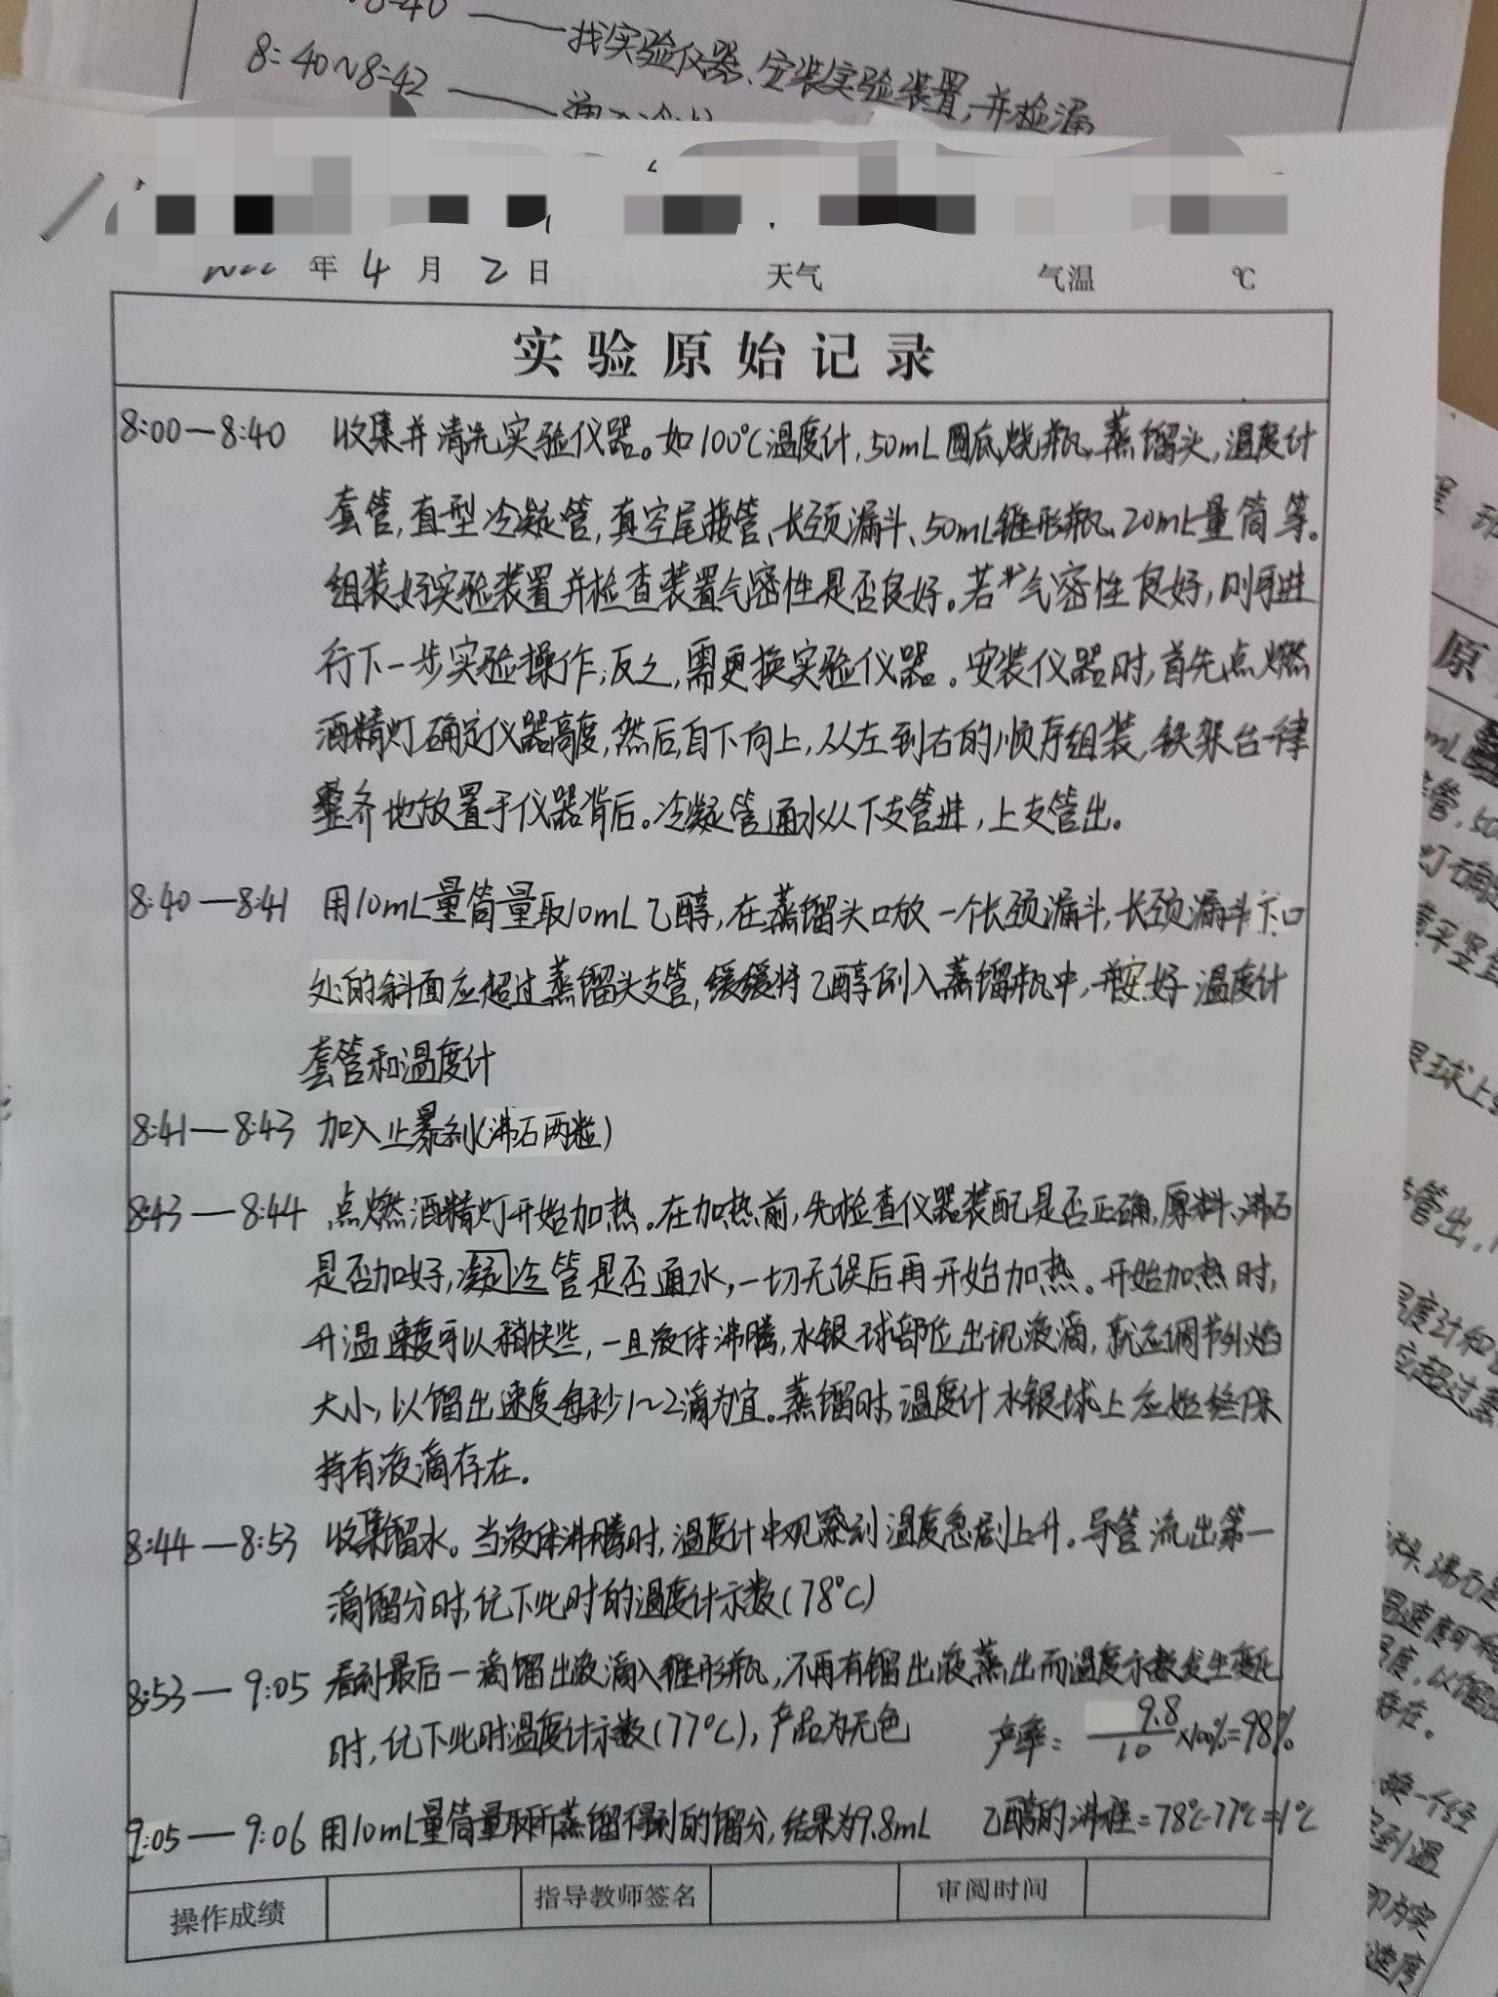 8:40
找实验仪器、安装实验装置,并检漏
8:40~8:42
年 4 月 2 日 天气 气温 ℃
实验原始记录
8:00—8:40 收集并清洗实验仪器。如100℃温度计,50mL圆底烧瓶,蒸馏头,温度计
套管,直型冷凝管,真空尾接管、长颈漏斗、50mL锥形瓶、20mL量筒等。
组装好实验装置并检查装置气密性是否良好。若气密性良好,则再进
行下一步实验操作;反之,需更换实验仪器。安装仪器时,首先点燃
酒精灯确定仪器高度,然后,自下向上,从左到右的顺序组装,铁架台一律
整齐地放置于仪器背后。冷凝管通水从下支管进,上支管出。
8:40—8:41 用10mL量筒量取10mL乙醇,在蒸馏头口放一个长颈漏斗,长颈漏斗下口
处的斜面应超过蒸馏头支管,缓缓将乙醇倒入蒸馏瓶中,并安好温度计
套管和温度计
8:41—8:43 加入止暴剂(沸石两粒)
8:43—8:44 点燃酒精灯开始加热。在加热前,先检查仪器装配是否正确,原料、沸石
是否加好,凝冷管是否通水,一切无误后再开始加热。开始加热时,
升温速度可以稍快些,一旦液体沸腾,水银球部位出现液滴,就应调节外焰
大小,以馏出速度每秒1~2滴为宜。蒸馏时,温度计水银球上应始终保
持有液滴存在。
8:44—8:53 收集馏水。当液体沸腾时,温度计中观察到温度急剧上升。导管流出第一
滴馏分时,记下此时的温度计示数(78℃)
8:53—9:05 看到最后一滴馏出液滴入锥形瓶,不再有馏出液蒸出而温度示数发生变化
时,记下此时温度计示数(77℃),产品为无色 产率: 9.8/10×100%=98%
9:05—9:06 用10mL量筒量取所蒸馏得到的馏分,结果为9.8mL 乙醇的沸程=78℃-77℃=1℃
操作成绩 指导教师签名 审阅时间